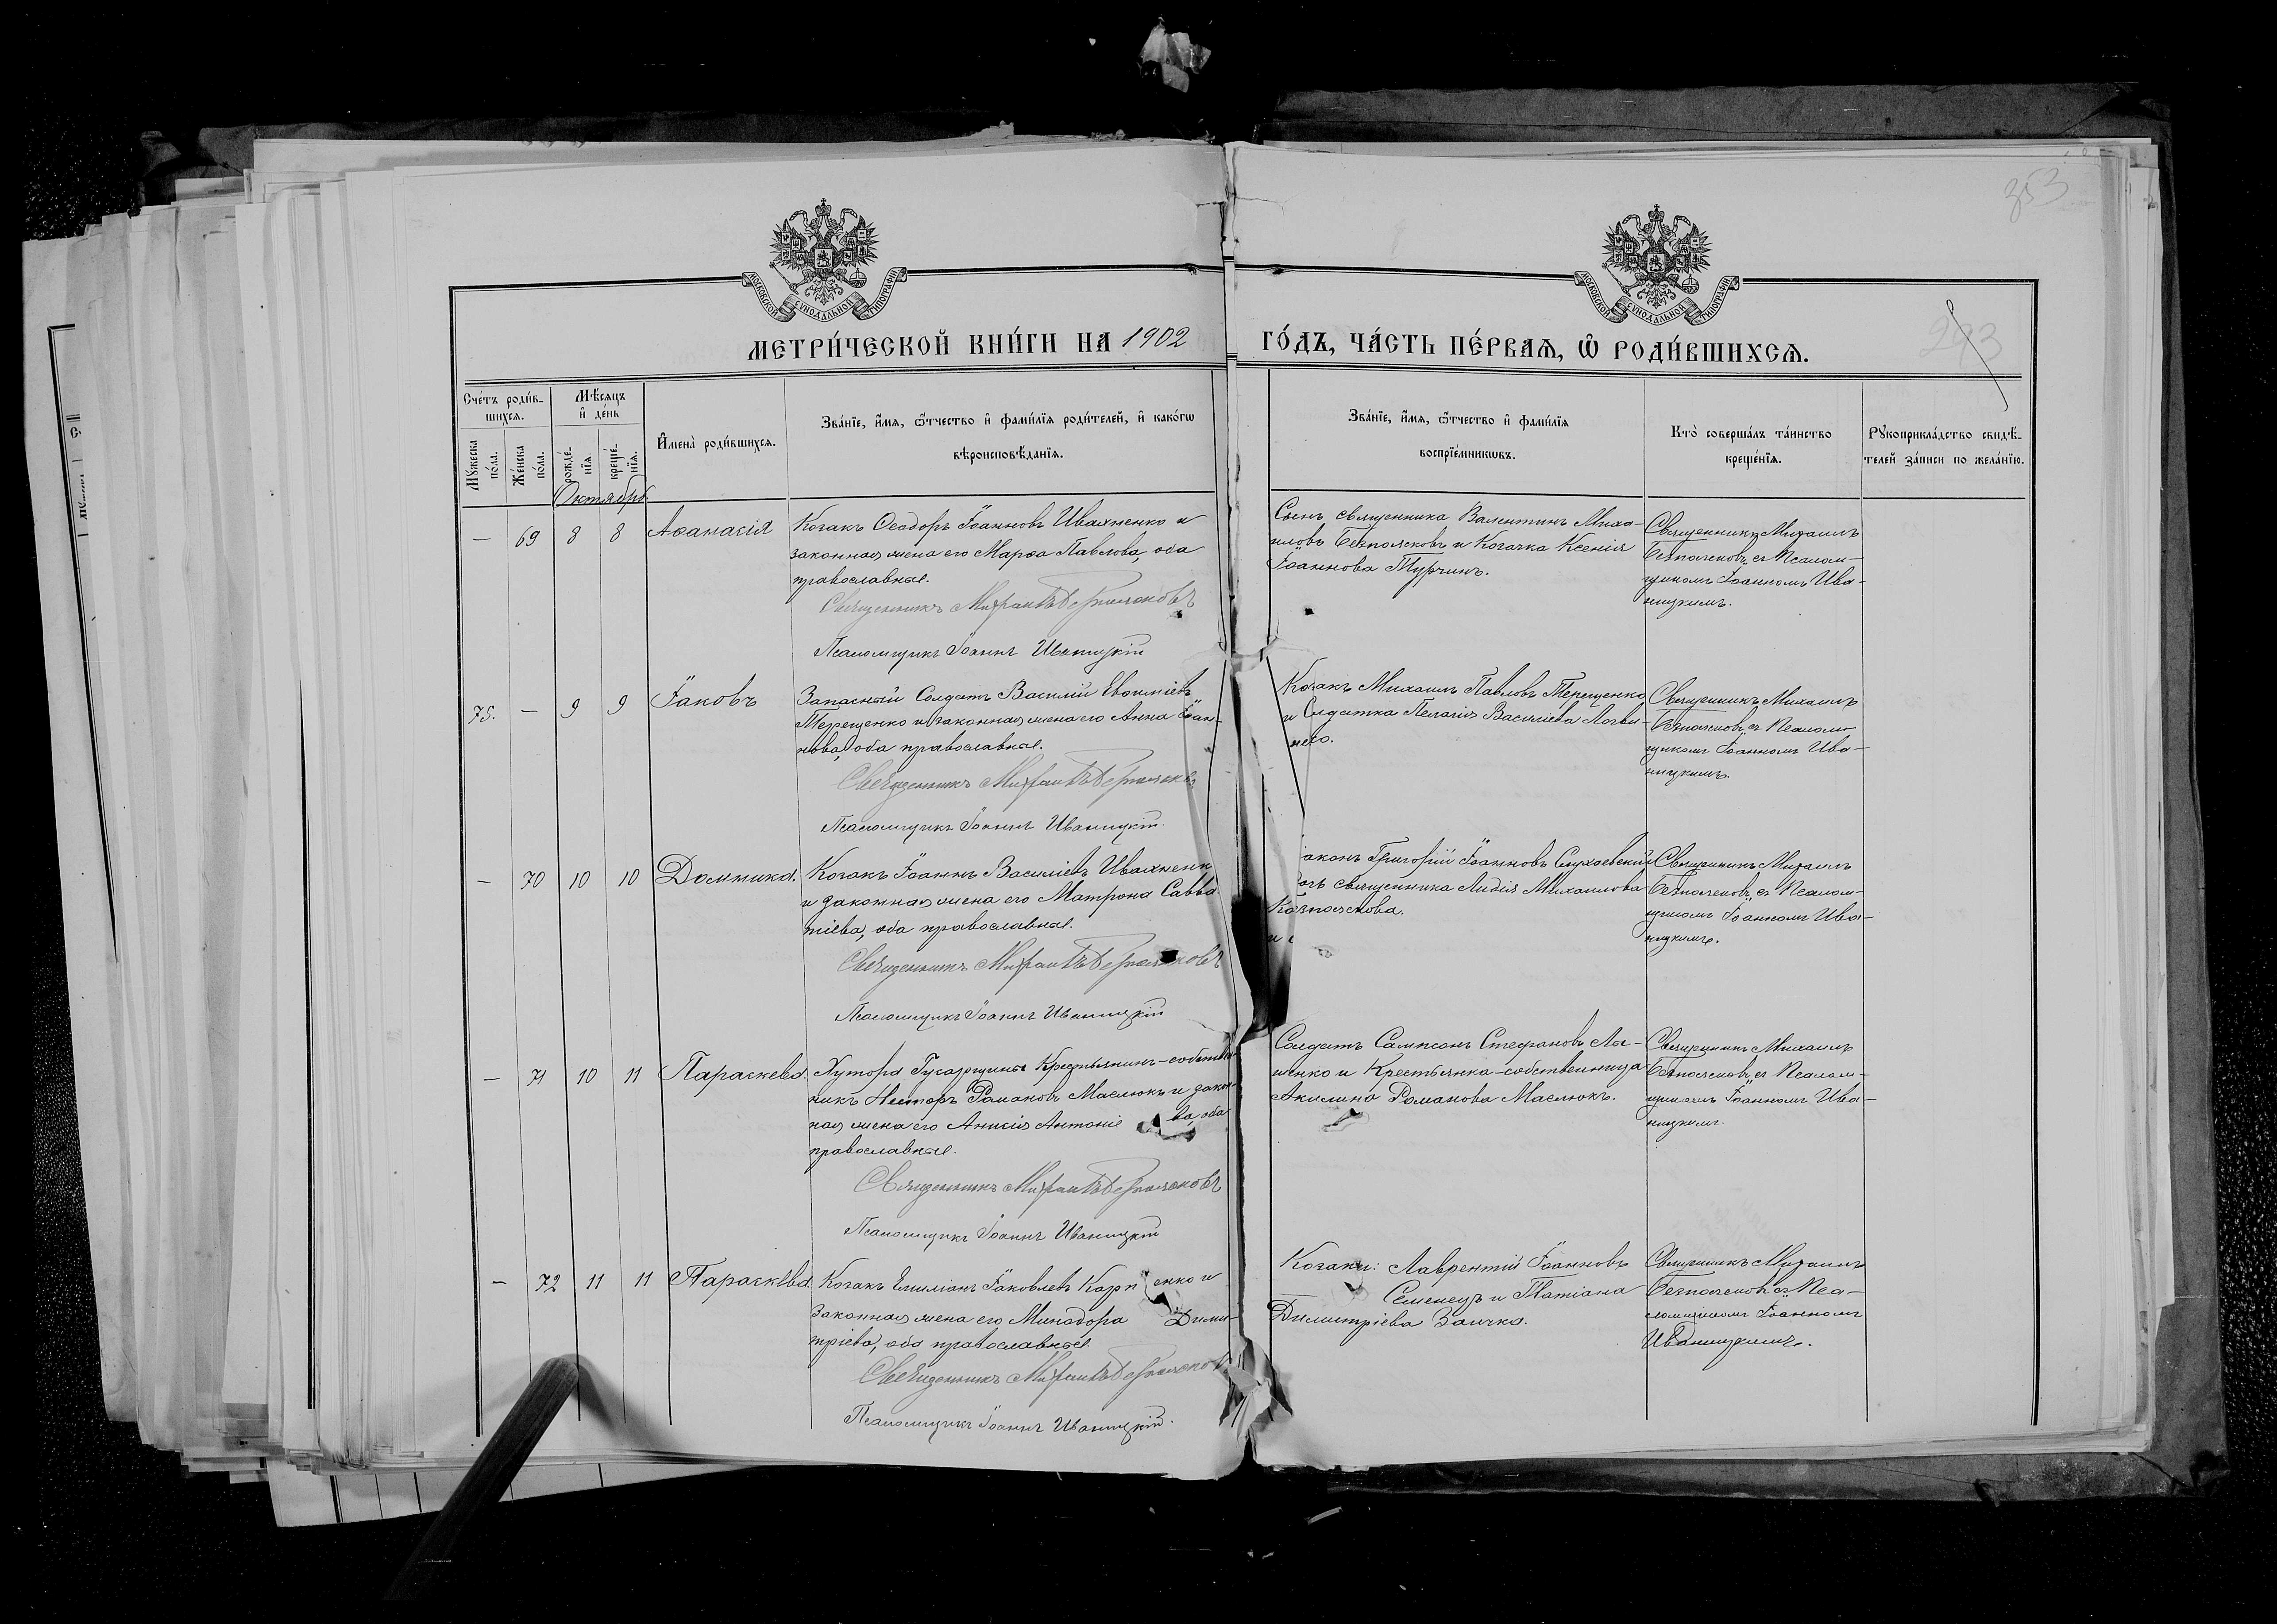 353
293
МОСКОВСКОЙ СѴНОДАЛЬНОЙ ТИПОГРАФІИ
МОСКОВСКОЙ СѴНОДАЛЬНОЙ ТИПОГРАФІИ
МЕТРИ́ЧЕСКОЙ КНИ́ГИ НА 1902 ГО́ДЪ, ЧА́СТЬ ПЕ́РВАѦ, Ѡ҆ РОДИ́ВШИХСѦ.
Сче́тъ роди́в-
шихсѧ.
Мꙋ́жеска по́ла.
Же́нска по́ла.
Мѣ́сѧцъ
и҆ де́нь
рожде́-
нїѧ
креще́-
нїѧ.
И҆мена̀ роди́вшихсѧ.
Зва́нїе, и҆́мѧ, ѻ҆́тчество и҆ фами́лїѧ роди́телей, и҆ како́гѡ
вѣроисповѣ́данїѧ.
Зва́нїе, и҆́мѧ, ѻ҆́тчество и҆ фами́лїѧ
воспрїе́мникѡвъ.
Кто̀ соверша́лъ та́инство
креще́нїѧ.
Рꙋкоприкла́дство свидѣ́-
телей за́писи по жела́нїю.
Октябрь
— 69 8 8 Аѳанасія
Козакъ Ѳеодоръ Іоанновъ Ивахненко и
законная жена его Марѳа Павлова, оба
православные.
Священникъ Михаилъ Безпоясковъ
Псаломщикъ Іоаннъ Иваницкій
Сынъ священника Валентинъ Миха-
иловъ Безпоясковъ и Козачка Ксенія
Іоаннова Турчинъ.
Священникъ Михаилъ
Безпоясковъ, съ Псалом-
щикомъ Іоанномъ Ива-
ницкимъ.
75. — 9 9 Іаковъ
Запасный Солдатъ Василій Евѳиміевъ
Терещенко и законная жена его Анна Іоан-
нова, оба православные.
Священникъ Михаилъ Безпоясковъ
Псаломщикъ Іоаннъ Иваницкій.
Козакъ Михаилъ Павловъ Терещенко
и Солдатка Пелагія Василіева Логви-
Священникъ Михаилъ
Безпоясковъ, съ Псалом-
щикомъ Іоанномъ Ива-
ницкимъ.
— 70 10 10 Домника.
Козакъ Іоаннъ Василіевъ Ивахненк
и законная жена его Матрона Савва-
тіева, оба православные.
Священникъ Михаилъ Безпоясковъ
Псаломщикъ Іоаннъ Иваницкій
Григорій Іоанновъ
священника Лидія Михаилова
Священникъ Михаилъ
Безпоясковъ, съ Псалом-
щикомъ Іоанномъ Ива-
ницкимъ.
— 71 10 11 Параскева.
Хутора Гусарщины Крестьянинъ-собствен-
никъ Несторъ Романовъ Маслюкъ и закон-
ная жена его Анисія Антоніева, оба
православные.
Священникъ Михаилъ Безпоясковъ
Псаломщикъ Іоаннъ Иваницкій
Солдатъ Сампсонъ Стефановъ
и Крестьянка-собственница
Акилина Романова Маслюкъ.
Священникъ Михаилъ
Безпоясковъ, съ Псалом-
щикомъ Іоанномъ Ива-
ницкимъ.
— 72 11 11 Параскева.
Козакъ Емиліанъ Іаковлевъ Карпенко и
законная жена его Минодора Дими-
тріева, оба православные.
Священникъ Михаилъ Безпоясковъ
Псаломщикъ Іоаннъ Иваницкій.
Козаки: Лаврентій Іоанновъ
Семенецъ и Татіана
Димитріева Заичка.
Священникъ Михаилъ
Безпоясковъ съ Пса-
ломщикомъ Іоанномъ
Иваницкимъ.